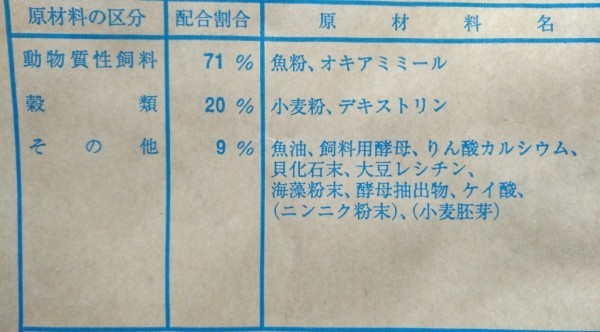 原材料の区分 配合割合 原材料名
動物質性飼料 71 % 魚粉、オキアミミール
穀類 20 % 小麦粉、デキストリン
その他 9 % 魚油、飼料用酵母、りん酸カルシウム、
貝化石末、大豆レシチン、
海藻粉末、酵母抽出物、ケイ酸、
(ニンニク粉末)、(小麦胚芽)